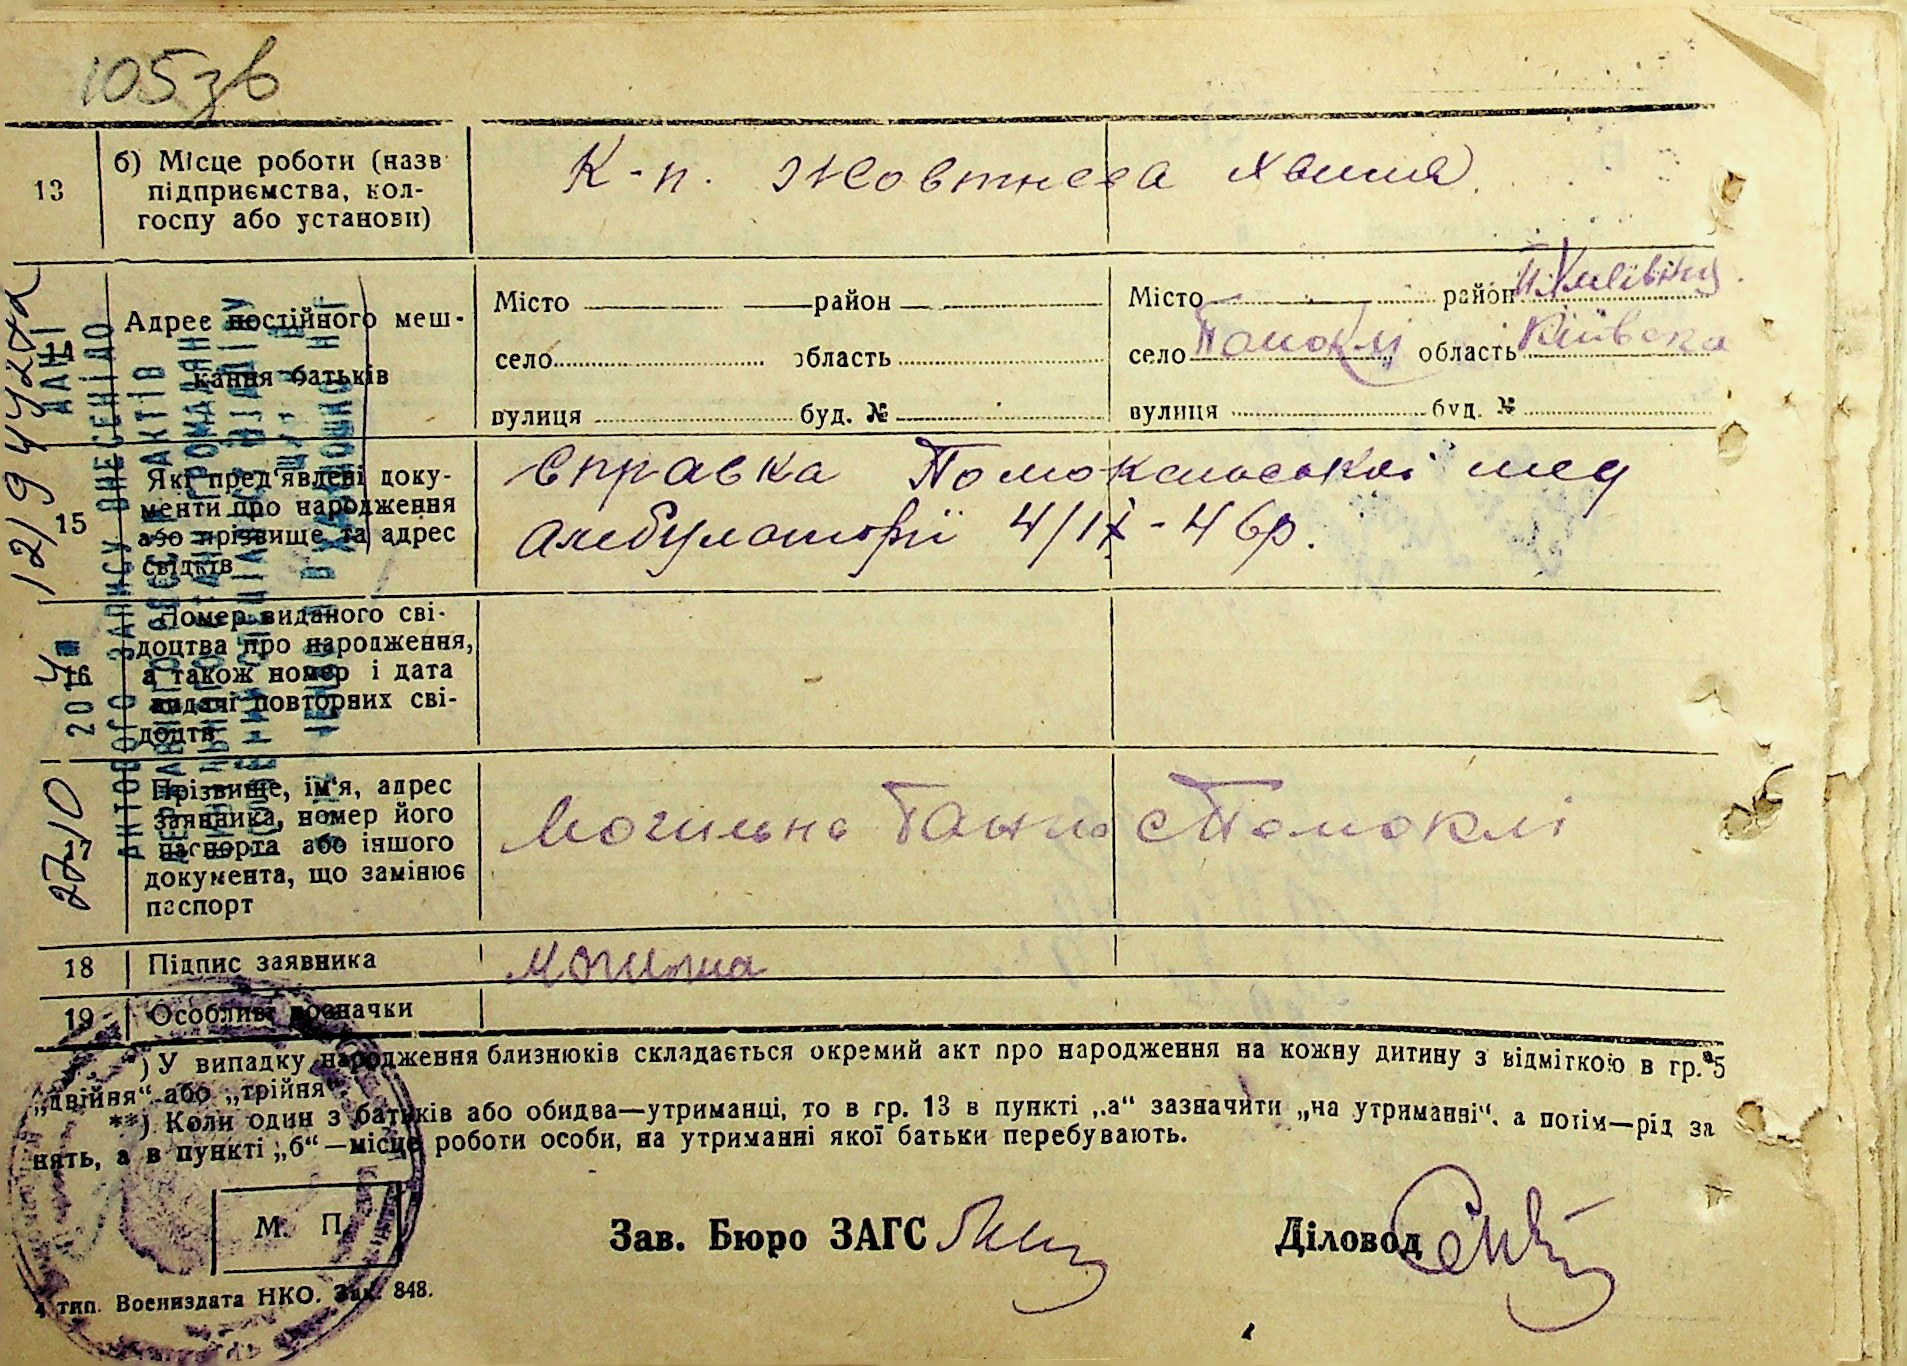 105зв
13
б) Місце роботи (назв
підприємства, кол-
госпу або установи)
К-п. Жовтнева хвиля
14
Адрес постійного меш-
кання батьків
Місто район
село область
вулиця буд. №
Місто район
село Помоклі область Київска
вулиця буд. №
15
Які пред'явлені доку-
менти про народження
або прізвище та адрес
свідків
Справка Помокельської мед
амбулаторії 4/IX-46р.
16
Номер виданого сві-
доцтва про народження,
а також номер і дата
видачі повторних сві-
доцтв
17
Прізвище, ім'я, адрес
заявника, номер його
паспорта або іншого
документа, що замінює
паспорт
Могильна Ганна с Помоклі
18
Підпис заявника
Могилна
19
Особливі позначки
*) У випадку народження близнюків складається окремий акт про народження на кожну дитину з відміткою в гр. 5
„двійня“ або „трійня“.
**) Коли один з батьків або обидва—утриманці, то в гр. 13 в пункті „а“ зазначити „на утриманні“, а потім—рід за
нять, а в пункті „б“—місце роботи особи, на утриманні якої батьки перебувають.
М. П.
Зав. Бюро ЗАГС
Діловод
4 тип. Воениздата НКО. Зак. 848.
ДАНІ
АКТОВОГО ЗАПИСУ ВНЕСЕНІ ДО
ДЕРЖАВНОГО РЕЄСТРУ АКТІВ
ЦИВІЛЬНОГО СТАНУ ГРОМАДЯН
27 10 2014